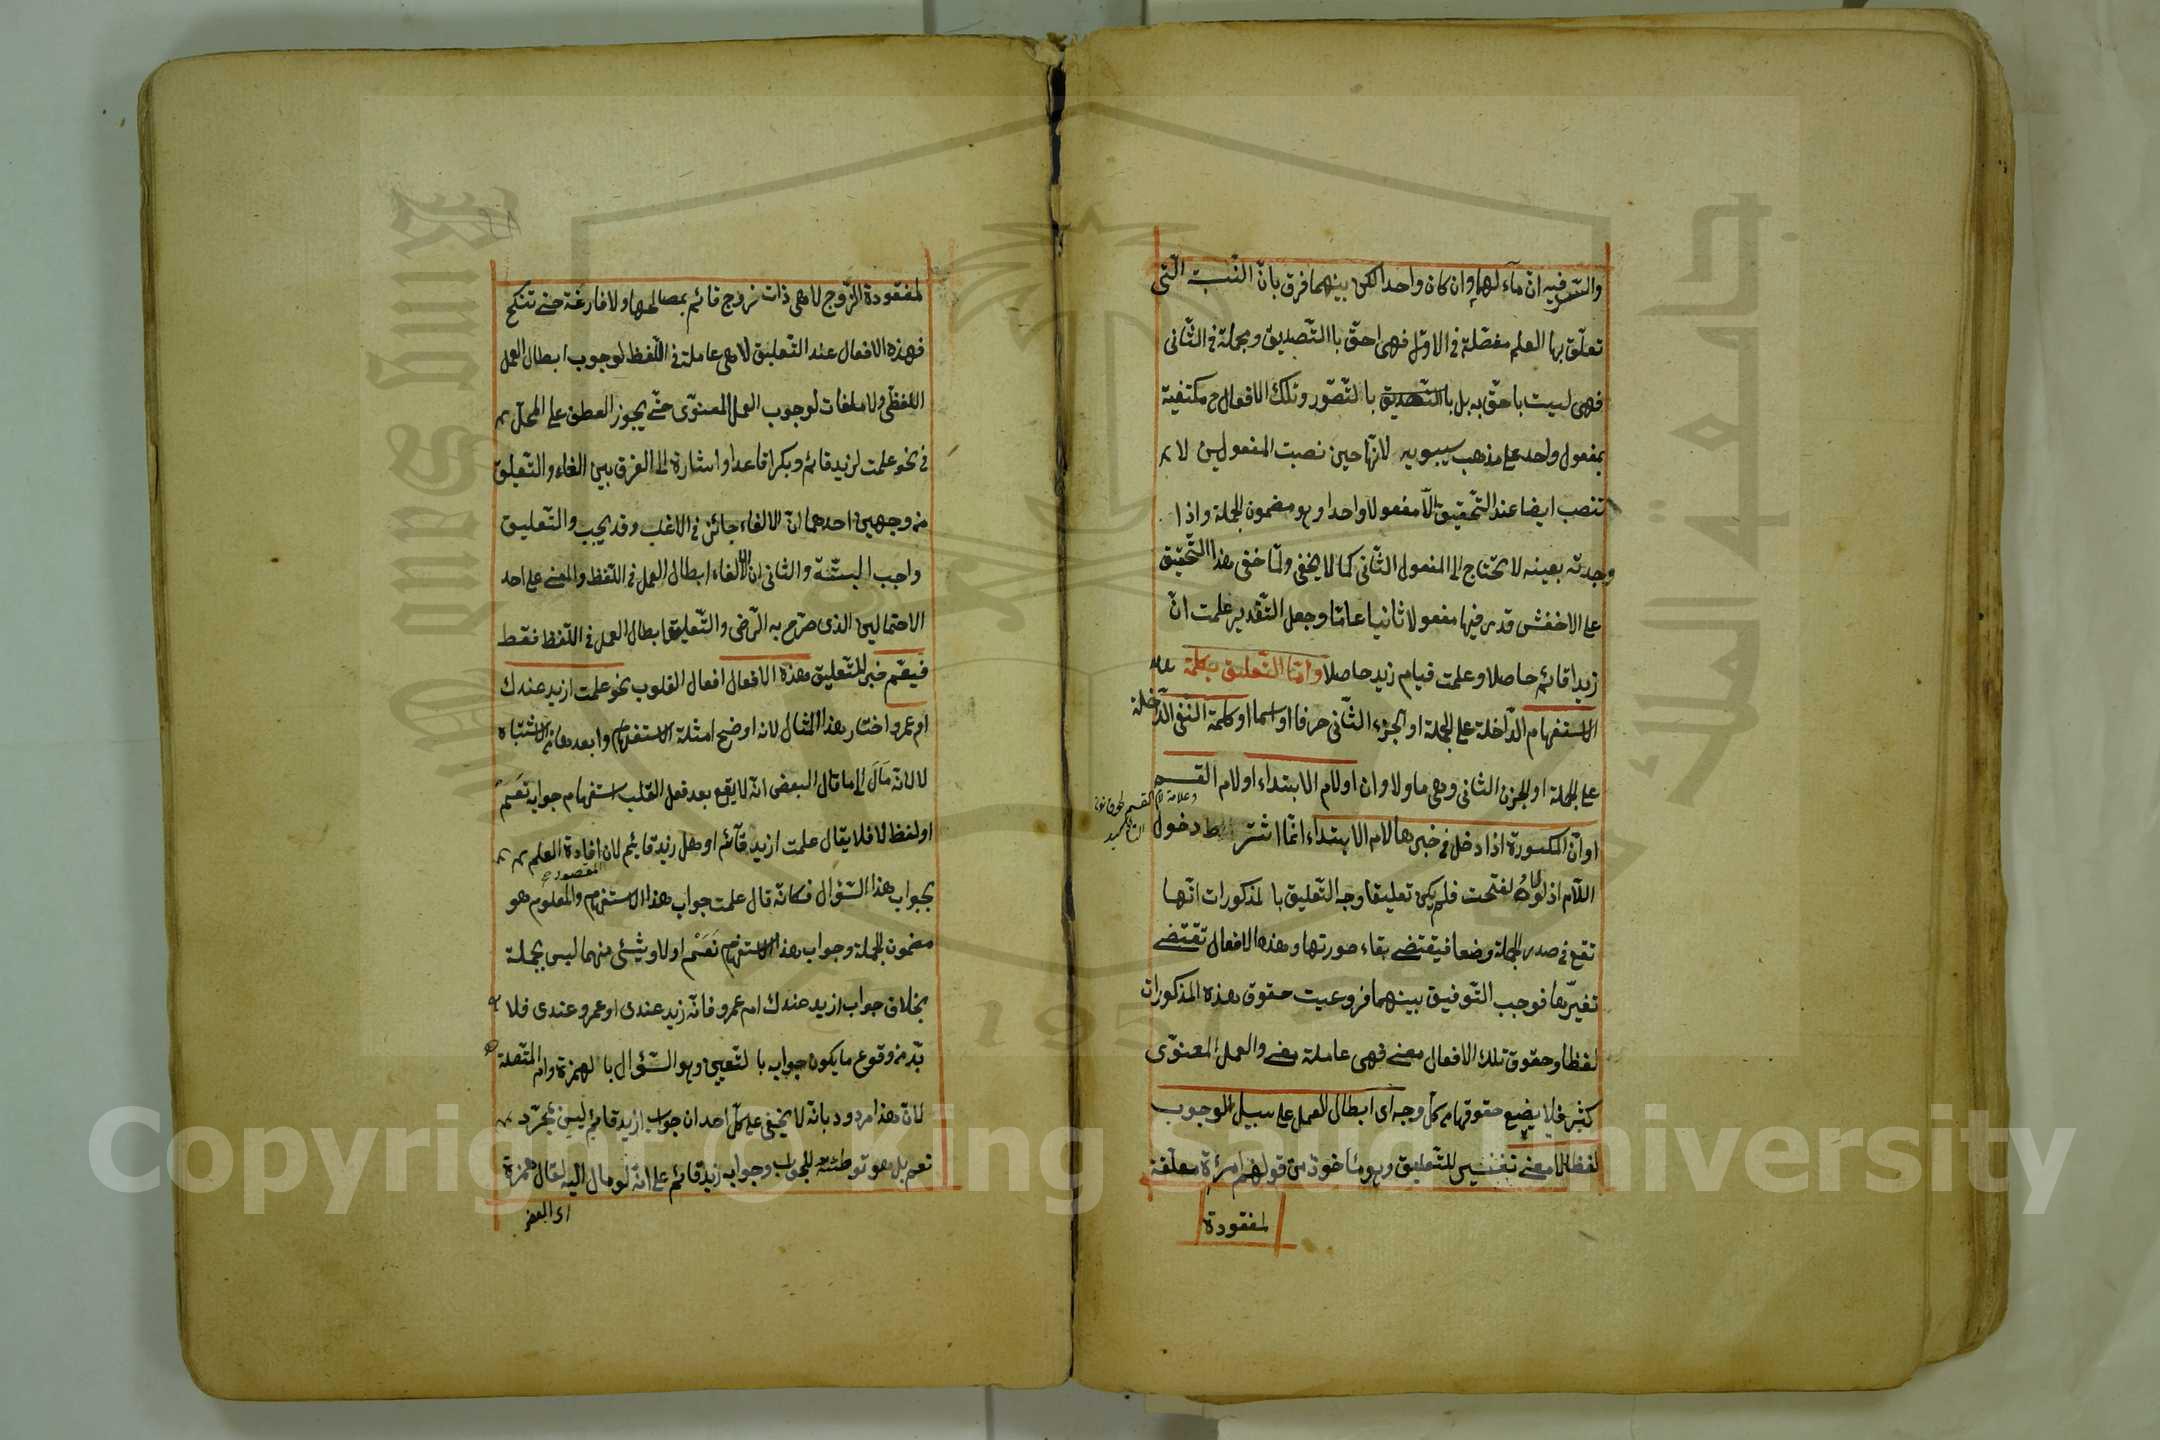 والسّر فيه انّ مآء لهما وان كان واحدا لكن بينهما فرق بانّ النّسبت الّتى
تعلّق بها العلم مفصّلة فى الاوّل فهى احقّ باالتّصديق ومجملة فى الثّانى
فهى ليست باحقّ به بل باالتّصديق بالتّصّور وتلك الافعال ح مكتفية
بمفعول واحد على مذهب سيبويه لانّها حين نصبت المفعولين لا
تنصب ايضا عند التّحقيق الّا مفعولا واحدا وهو مضمون الجملة واذا
وجدته بعينه لا تحتاج الى المفعول الثّانى كما لا يخفى ولمّا خفى هذا التّحقيق
على الاخفش قدر فيها مفعولا ثانيا عامّا وجعل التّقدير علمت انّ
زيدا قائم حاصلا وعلمت قيام زيد حاصلا وامّا التّعليق بكلمة
الاستفهام الدّاخلة على الجملة او الجزء الثّانى حرفا او اسما او كلمة النّفى الدّاخلة
على الجملة او الجزء الثانى وهى ما ولا وان او لام الابتداء او لام القسم
وعلامة لام القسم
اوانّ المكسورة اذا دخل فى خبرها لام الابتداء انّما اشترط دخول
اللّام اذ لولاه لفتحت فلم يكن تعليقا وجه التّعليق بالمذكورات انّها
تقع فى صدر الجملة وضعا فيقتضى بقاء صورتها وهذه الافعال تقتضى
تغيّرها فوجب التّوفيق بينهما فروعيت حقوق هذه المذكورات
لفظا وحقوق تلك الافعال معنى فهى عاملة معنى والعمل المعنوّى
كثير فلا يضيع حقوقها من كلّ وجه اى ابطال العمل على سبيل الوجوب
لفظا لا معنى تفسير للتّعليق وهو مأخوذ من قولهم امرئة معلّقة
لمفقودة
لمفقودة الزّوج لا هى ذات زوج قائم بمصالحها ولا فارغة حتى تنكح
فهذه الافعال عند التّعليق لا هى عاملة فى اللّفظ لوجوب ابطال العمل
اللفظّى ولا ملغات لوجوب العمل المعنوّى حتّى يجوز العطف على المحلّ
فى نحو علمت لزيد قائم وبكرا قاعدا واشارة الى الفرق بين الغاء والتّعليق
من وجهين احدهما انّ الالغاء جائز فى الاغلب وقد يجب والتّعليق
واجب البتّة والثانى انّ الالغاء ابطال العمل فى اللّفظ والمعنى على احد
الاحتمالين الذى صرّح به الرّضى والتّعليق ابطال العمل فى اللّفظ فقط
فيعمّ خبر للتّعليق هذه الافعال افعال القلوب نحو علمت ازيد عندك
ام عمرو اختار هذا المثال لانه اوضح امثلة الاستفهام وابعد معانى الاشتباه
لا لانّه مَالَ الى ما قال البعض انّه لا يقع بعد فعل القلب استفهام جوابه نَعَمْ
او لفظ لا فلا يقال علمت ازيد قآئم او هل زيد قايم لان افادة العلم
المقصودة
بجواب هذا السّؤال فكانّه قال علمت جواب هذا الاستفهام والمعلوم هو
مضمون الجملة وجواب هذا الاستفهام نَعَمْ او لا وشيئى منهما ليس بجملة
بخلاف جواب ازيد عندك ام عمرو فانّه زيد عندى او عمرو عندى فلا
بدّ من وقوع ما يكون جوابه بالتّعيين وهو السّؤال بالهمزة وام المتّصلة
لانّ هذا مردود بانّه لا يخفى على كلّ احد ان جواب ازيد قايم ليس بمجرّد
نعم بل هو توطئة للجواب وجوابه زيد قائم على انّه لو مال اليه لقال همزة
اى البعض